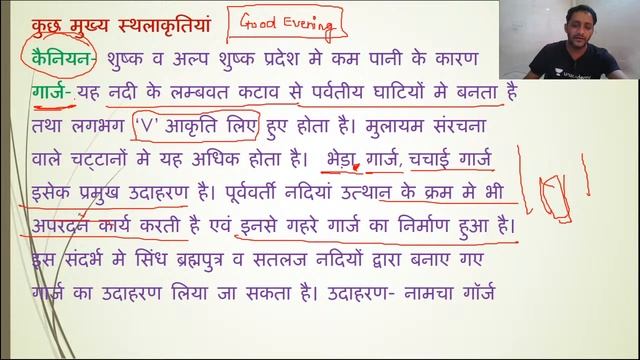 कुछ मुख्य स्थलाकृतियां
Good Evening
कैनियन- शुष्क व अल्प शुष्क प्रदेश मे कम पानी के कारण
गार्ज- यह नदी के लम्बवत कटाव से पर्वतीय घाटियों मे बनता है
तथा लगभग 'V' आकृति लिए हुए होता है। मुलायम संरचना
वाले चट्टानों मे यह अधिक होता है। भेड़ा गार्ज, चचाई गार्ज
इसेक प्रमुख उदाहरण है। पूर्ववर्ती नदियां उत्थान के क्रम मे भी
अपरदन कार्य करती है एवं इनसे गहरे गार्ज का निर्माण हुआ है।
इस संदर्भ मे सिंध ब्रह्मपुत्र व सतलज नदियों द्वारा बनाए गए
गार्ज का उदाहरण लिया जा सकता है। उदाहरण- नामचा गॉर्ज